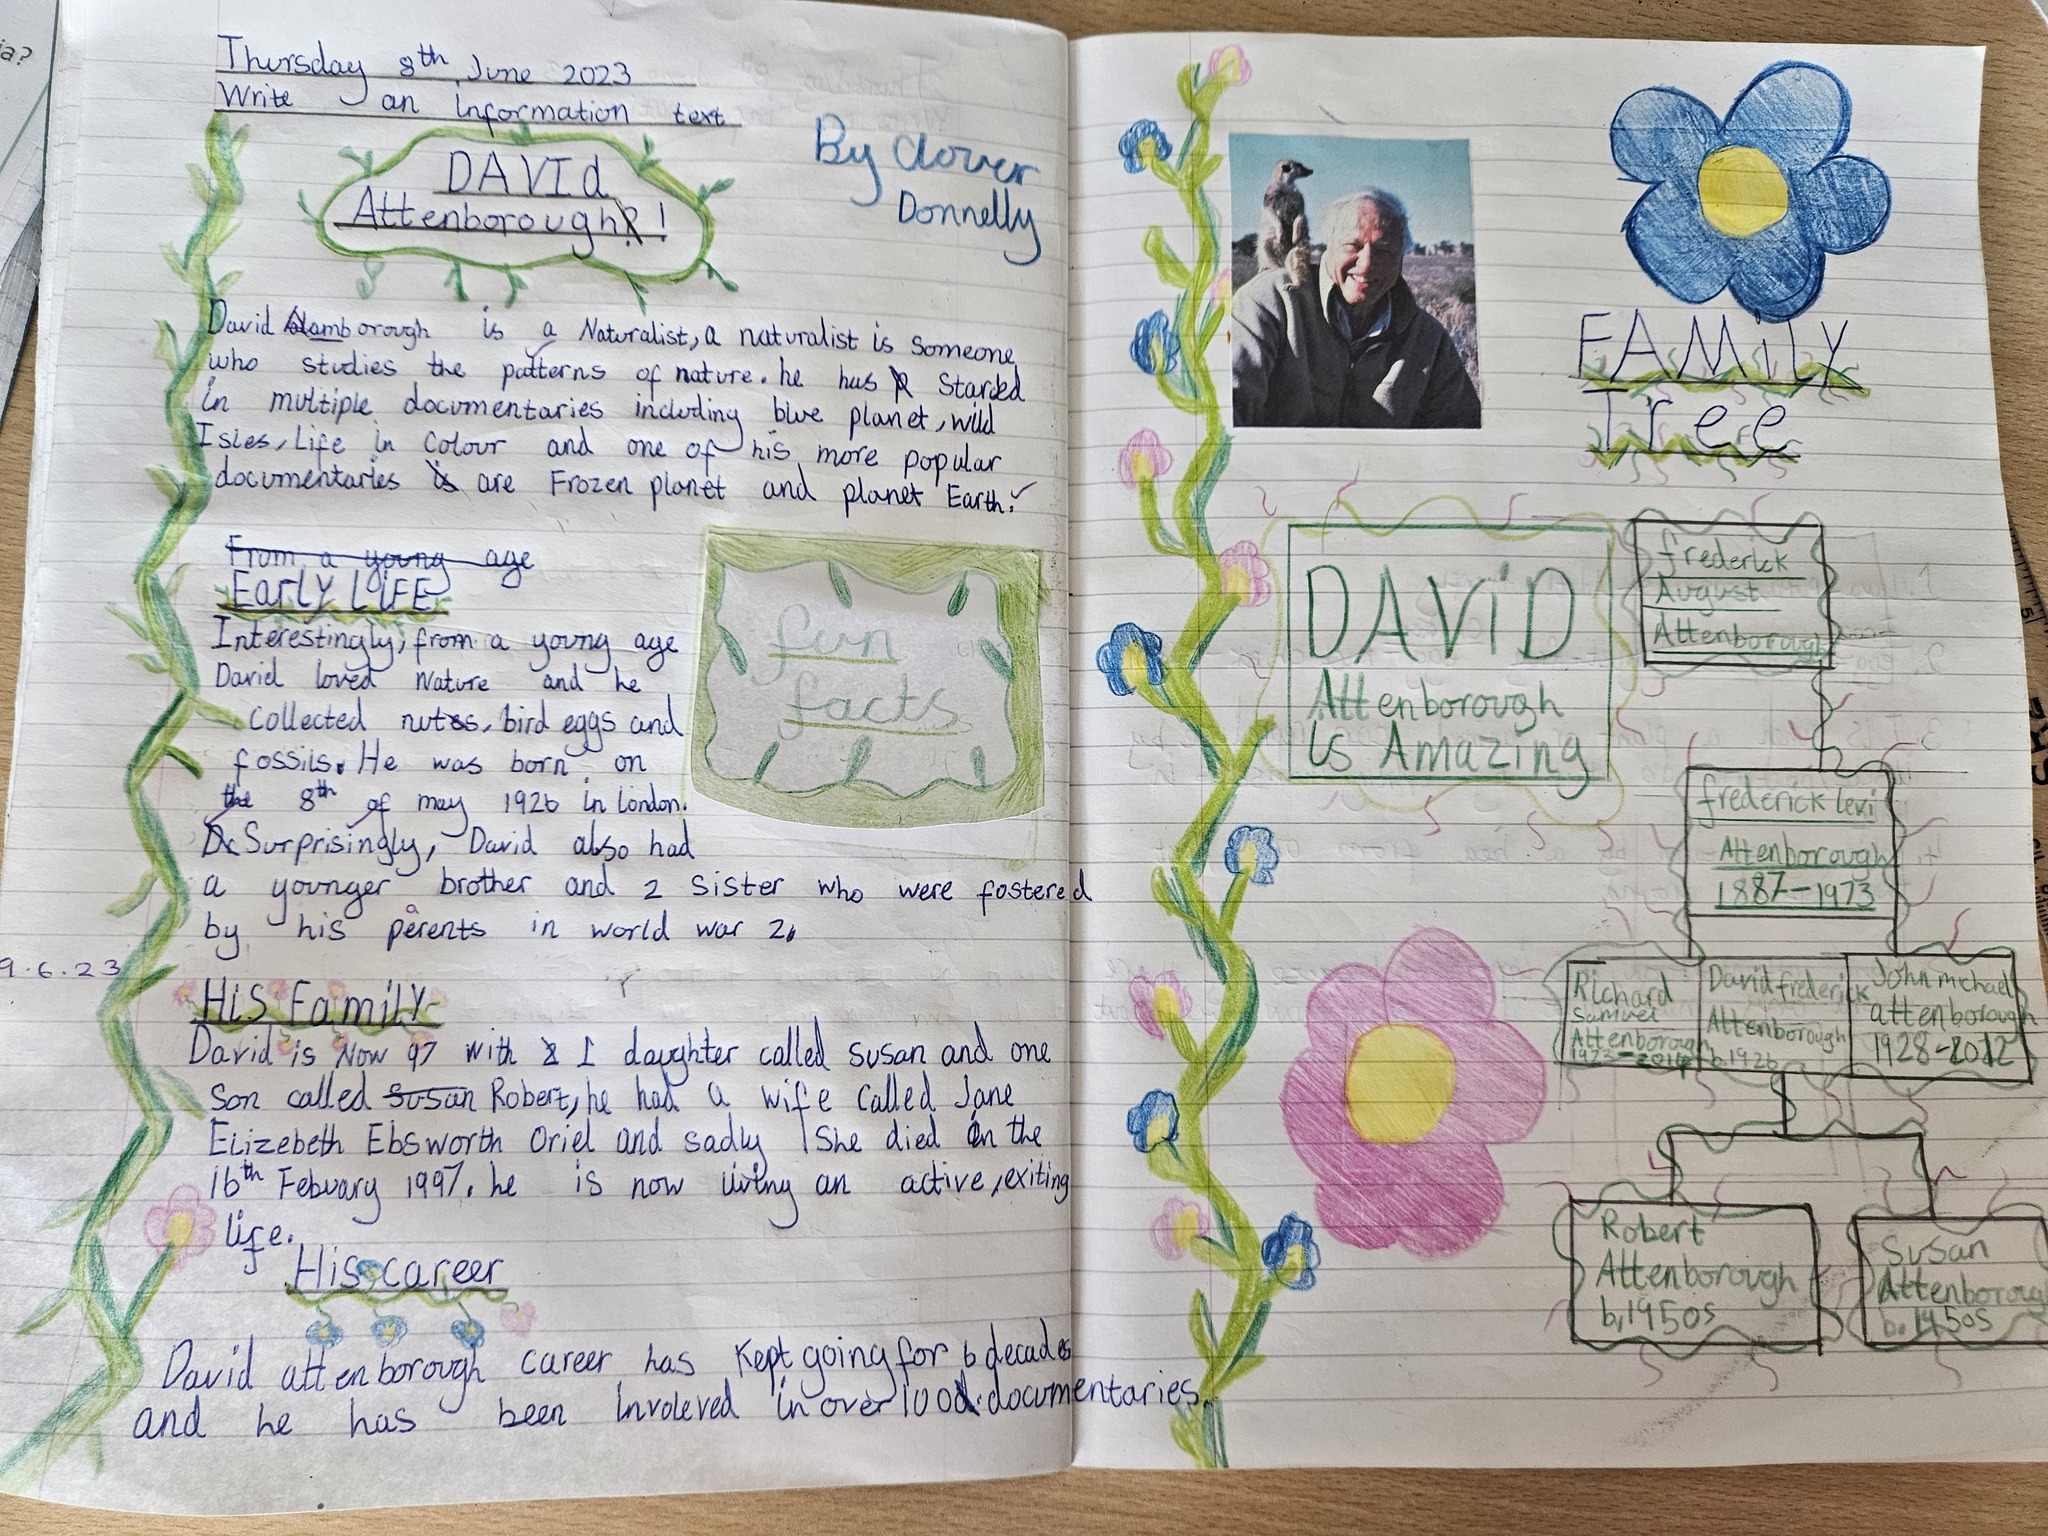 ia?
Thursday 8th June 2023
Write an information text
DAVId
Attenborough!
By Clover
Donnelly
David Atamborough is a Naturalist, a naturalist is someone
who studies the patterns of nature. he has Starded
in multiple documentaries including blue planet, wild
Isles, Life in Colour and one of his more popular
documentaries are Frozen planet and planet Earth.
From a young age
EarLy LiFE
Interestingly, from a young age
David loved Nature and he
Collected nuts, bird eggs and
fossils. He was born on
the 8th of may 1926 in london.
Surprisingly, David also had
a younger brother and 2 sister who were fostered
by his perents in world war 2.
9.6.23
His Family
David is Now 97 with 1 daughter called susan and one
Son called Susan Robert, he had a wife called Jane
Elizebeth Ebsworth Oriel and sadly she died on the
16th Febuary 1997. he is now living an active, exiting
life.
His career
David attenborough career has Kept going for 6 decades
and he has been Involeved in over 100 documentaries.
fun
facts
FAMiLY
Tree
DAViD
Attenborough
is Amazing
frederick
August
Attenborough
frederick levi
Attenborough
1887-1973
Richard
Samuel
Attenborough
1923-2014
David frederick
Attenborough
b.1926
John michael
attenborough
1928-2012
Robert
Attenborough
b.1950s
Susan
Attenborough
b.1950s